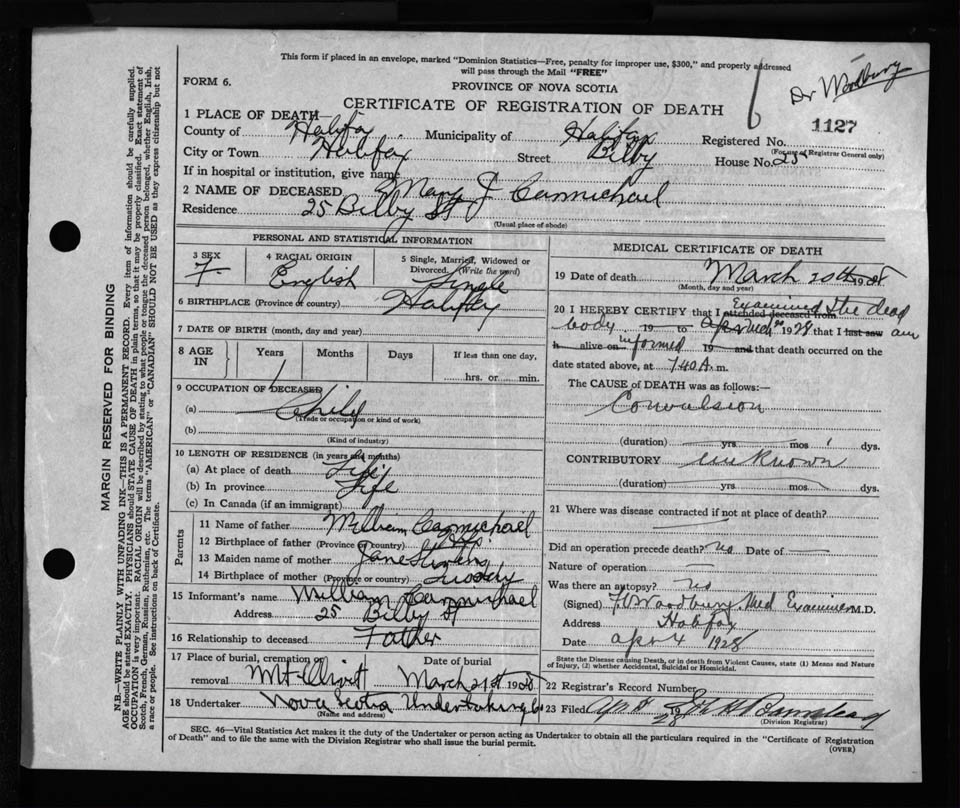 This form if placed in an envelope, marked "Dominion Statistics—Free, penalty for improper use, $300," and properly addressed
will pass through the Mail "FREE"
Dr Woodbury
FORM 6.
PROVINCE OF NOVA SCOTIA
CERTIFICATE OF REGISTRATION OF DEATH
1127
1 PLACE OF DEATH
County of Halifax Municipality of Halifax Registered No.
(For use of Registrar General only)
City or Town Halifax Street Bilby House No. 25
If in hospital or institution, give name
2 NAME OF DECEASED Mary J Carmichael
Residence 25 Bilby St
(Usual place of abode)
PERSONAL AND STATISTICAL INFORMATION
3 SEX F. 4 RACIAL ORIGIN English 5 Single, Married, Widowed or Divorced. (Write the word) Single
6 BIRTHPLACE (Province or country) Halifax
7 DATE OF BIRTH (month, day and year)
8 AGE IN Years 1 Months Days If less than one day, hrs. or min.
9 OCCUPATION OF DECEASED
(a) Child
(Trade or occupation or kind of work)
(b)
(Kind of industry)
10 LENGTH OF RESIDENCE (in years and months)
(a) At place of death Life
(b) In province Life
(c) In Canada (if an immigrant)
Parents
11 Name of father William Carmichael
12 Birthplace of father (Province or country)
13 Maiden name of mother Jane
14 Birthplace of mother (Province or country)
15 Informant's name William Carmichael
Address 25 Bilby St
16 Relationship to deceased Father
17 Place of burial, cremation or removal Mt Olivet Date of burial March 21st 1928
18 Undertaker Nova Scotia Undertaking Co
(Name and address)
MEDICAL CERTIFICATE OF DEATH
19 Date of death March 20th 1928
(Month, day and year)
20 I HEREBY CERTIFY that I attended deceased from Examined the dead
body 19 to 1928 that I last saw am
h alive on informed 19 and that death occurred on the
date stated above, at 1 40 A.m.
The CAUSE of DEATH was as follows:—
Convulsion
(duration) yrs mos 1 dys.
CONTRIBUTORY unknown
(duration) yrs mos dys.
21 Where was disease contracted if not at place of death?
Did an operation precede death? no Date of
Nature of operation
Was there an autopsy? no
(Signed) Woodbury Med Examiner M.D.
Address Halifax
Date Apr 4 1928
State the Disease causing Death, or in death from Violent Causes, state (1) Means and Nature
of Injury, (2) whether Accidental, Suicidal or Homicidal.
22 Registrar's Record Number
23 Filed 19 28
(Division Registrar)
SEC. 46—Vital Statistics Act makes it the duty of the Undertaker or person acting as Undertaker to obtain all the particulars required in the "Certificate of Registration
of Death" and to file the same with the Division Registrar who shall issue the burial permit.
(OVER)
MARGIN RESERVED FOR BINDING
N.B.—WRITE PLAINLY WITH UNFADING INK—THIS IS A PERMANENT RECORD. Every item of information should be carefully supplied.
AGE should be stated EXACTLY. PHYSICIANS should STATE CAUSE OF DEATH in plain terms, so that it may be properly classified. Exact statement of
OCCUPATION is very important. RACIAL ORIGIN will be described by stating to what people or tongue the deceased person belonged, whether English, Irish,
Scotch, French, German, Russian, Ruthenian, etc. The terms "AMERICAN" or "CANADIAN" SHOULD NOT BE USED as they express citizenship but not
a race or people. See instructions on back of Certificate.